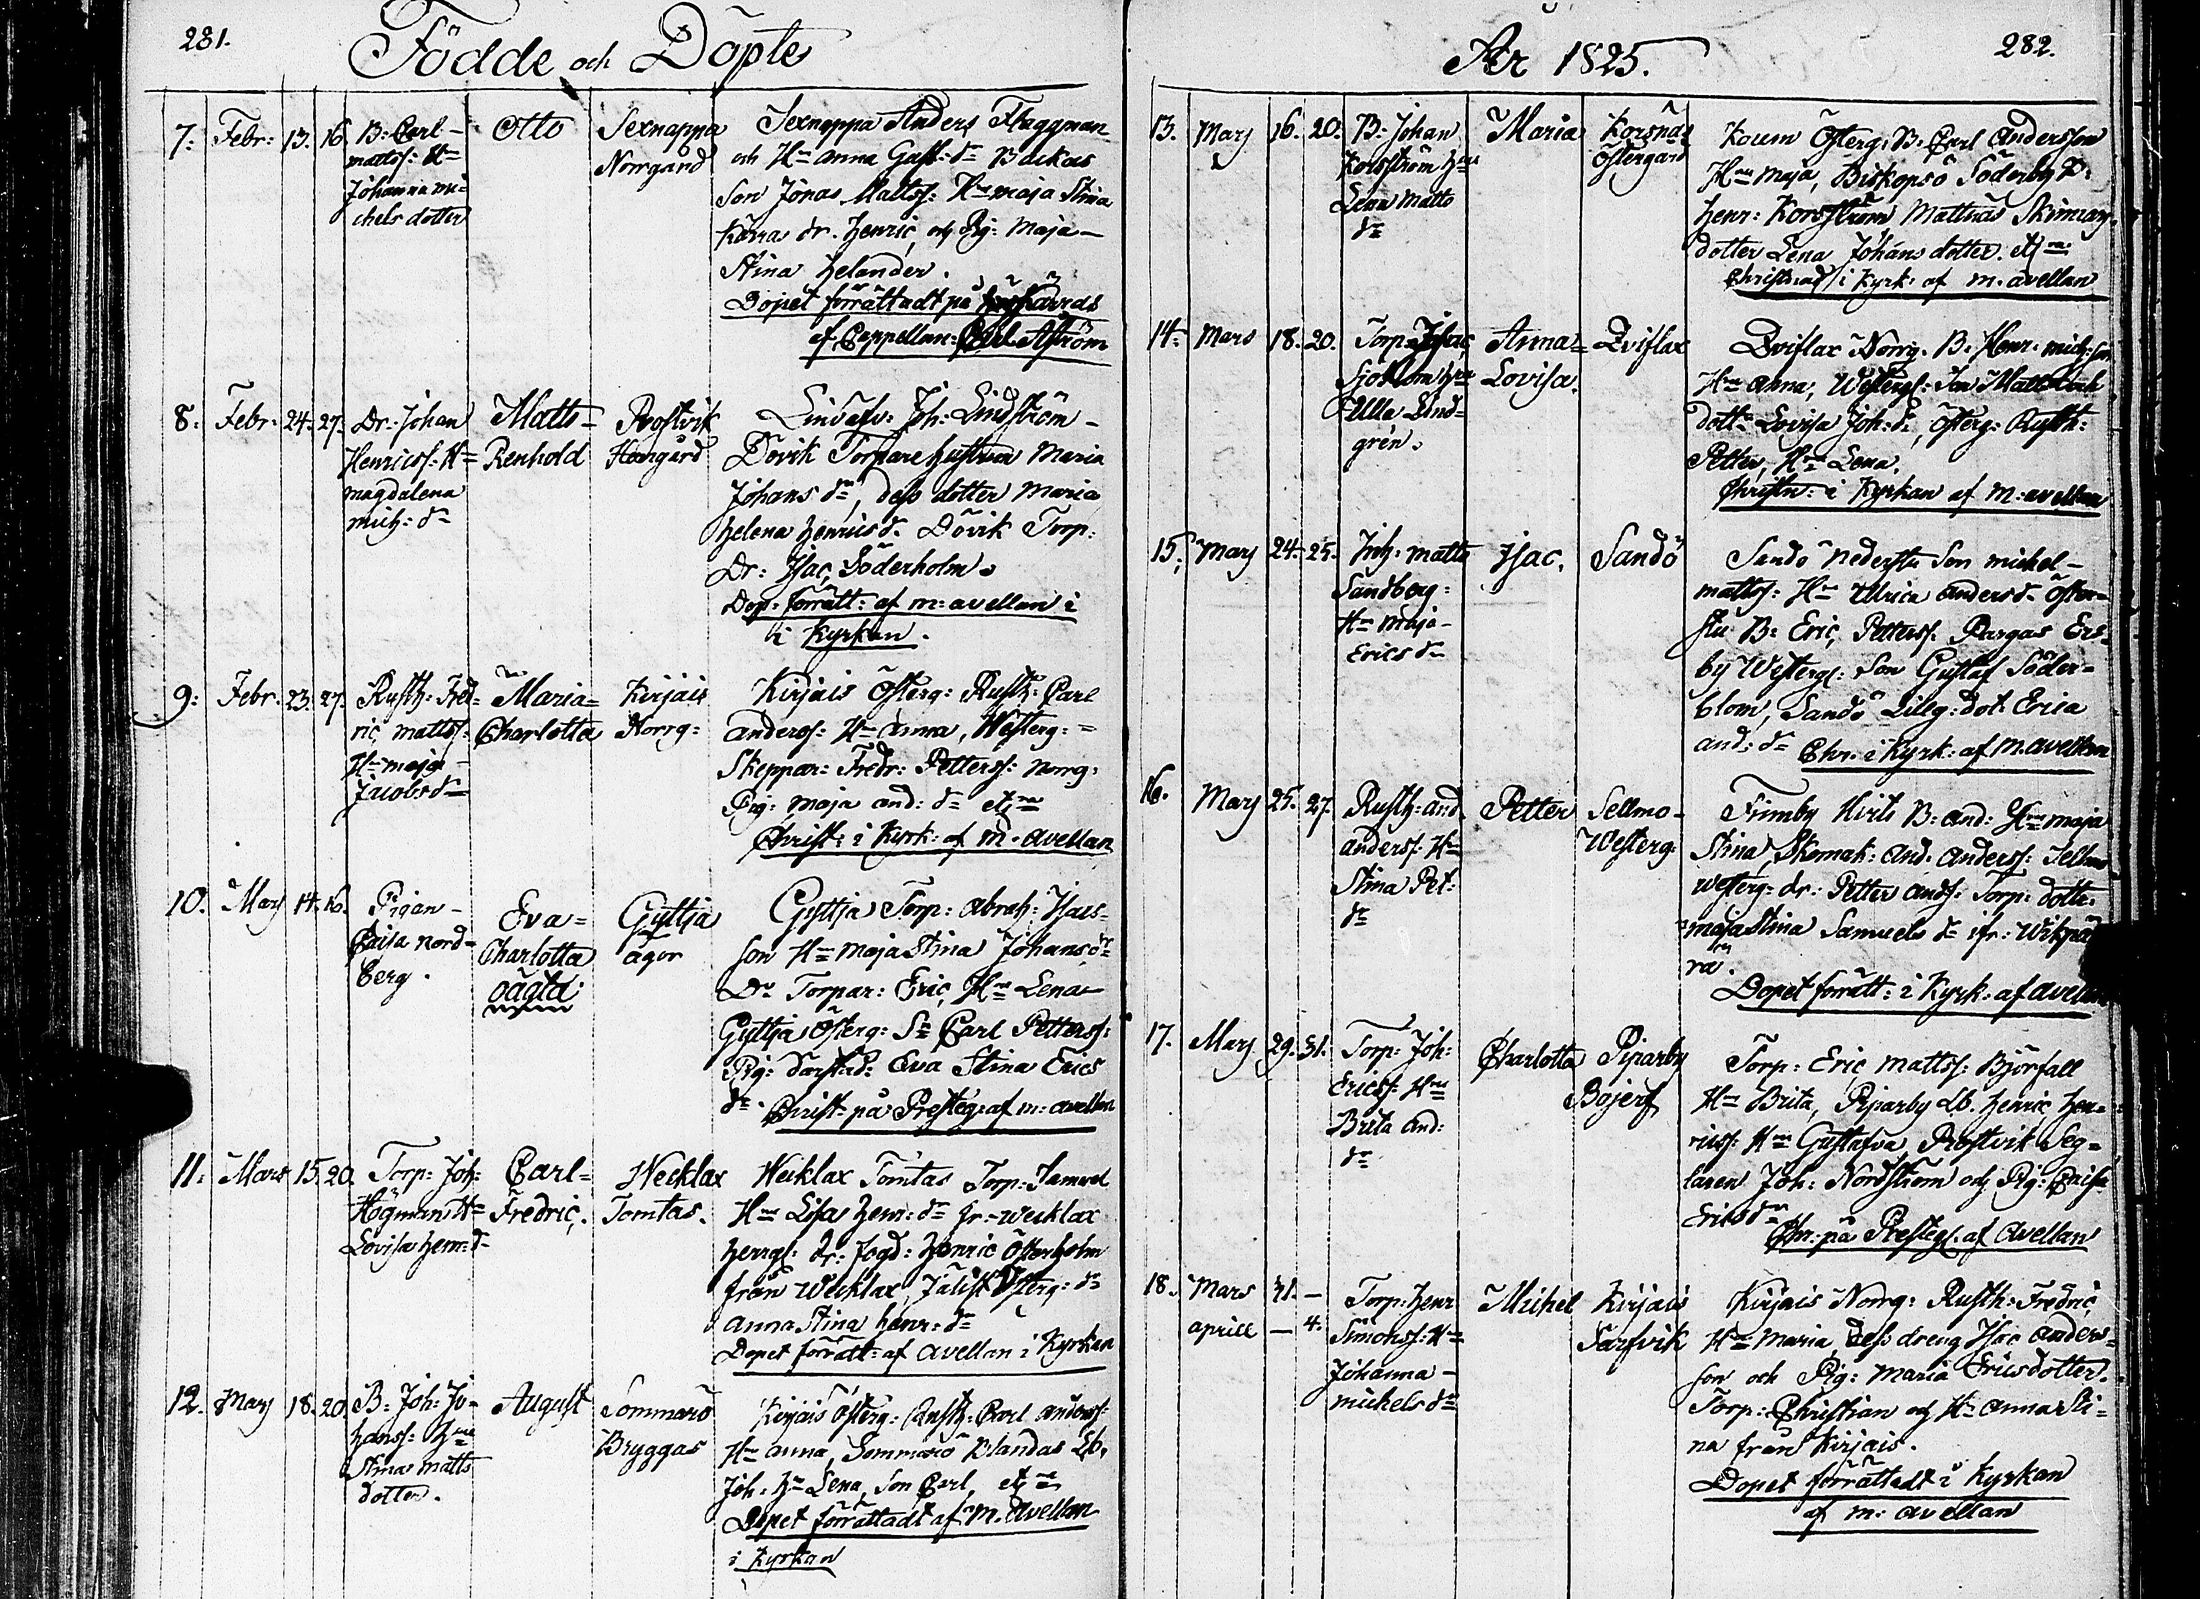 281.
Födde och Döpte
7: Febr: 13. 16. B: Carl Otto Sexnappa Sexnappa Anders Flaggman
mattss: H:n Norrgård och H:n Anna Gust: d:r Backas
Johanna mi- Son Jonas Mattss: H:n maja Stina
chels dotter Kärra dr. Henric, och Pig: Maja-
Stina Helander.
Döpet förrättadt på
af Cappellan: Åström
8: Febr. 24. 27. Dr: Johan Matts- Rostvik Joh: Lindström
Henricss: H:n Renhold Dövik Torpare hustrun Maria
magdalena Johans d:r, dess dotter Maria
mich: d:r Helena Henrics d:r Dövik Torp:
Dr: Isac Söderholm.
Dop: förrätt: af m: avellan i
i Kyrkan.
9: Febr. 23. 27. Rusth: Fred- Maria= Kirjais Kirjais Österg: Rusth: Carl
ric mattss: Charlotta Norrg: anderss: H:n Anna, Westerg: =
H:n maja Skeppar: Fredr: Petterss: norrg:
Jacobs d:r Pig: maja and: d:r etc
Christ: i Kyrk: af m. avellan
10. Mars 14. 16. Pigan Eva= Gyttja Gyttja Torp: Abrah: Isacs-
Caisa nord- Charlotta ägor son H:n maja Stina Johans d:r
berg. oägta D:o Torpar: Eric, H:n Lena
Gyttja Österg: S:n Carl Petterss:
Pig: Eva Stina Erics
d:r. Christ: på Presteg: af m: avellan
11. Mars 15. 20. Torp: Joh: Carl= Wecklax Wecklax Tomtas Torp: Samuel
Högman H:n Fredric. Tomtas. H:n Lisa Henr: d:r fr: Wecklax
Lovisa Henr: d:r Herrg: dr: Henric Österholm
från Wecklax, Jälist Österg: d:r
Anna Stina henr: d:r
Dopet förrätt: af Avellan i Kyrkan
12. Mars 18. 20. B: Joh: Jo- August Sommarö Kirjais Österg: Rusth: Carl anderss:
hanss: H:n Bryggas H:n anna, Sommarö Blandas Lb:
Stina matts Joh: H:n Lena, Son Carl, etc
dotter. Dopet förrättadt af m. Avellan
i Kyrkan
År 1825.
282.
13. Mars 16. 20. B: Johan Maria Korsnäs Österg: B: Carl Andersson
Korsström H:n Östergård H:n Maja, Biskopsö Söderby
Lena Matts Henr: Korsström Mattnäs
d:r dotter Lena Johans dotter. etc
Christnad i Kyrk: af m. avellan
14. Mars 18. 20. Torp: Isac Anna= Dviflax Dviflax Norrg. B: Henr: mich: son
Sjöblom H:n Lovisa. H:n Anna, Westerg:
Ulla Lind- dott: Lovisa Joh: d:r, Österg: Rusth:
grén. Petter, H:n Lena.
Christn: i Kyrkan af M: avellan
15. Mars 24. 25. Inh: matts Isac. Sandö Sandö nedersta Son michel
Sandberg: mattss: H:n Ulrica anders d:r öfver-
H:n maja sta B: Eric Petterss: Pargas Ers-
Erics d:r by Westerg: Son Gustaf Söder-
blom, Sandö Lillg: dot. Erica
and: d:r Chr. i Kyrk: af m. avellan
16. Mars 25. 27. Rusth: and. Petter Sellmo Finnby Hvits B: and: H:n maja
anderss: H:n Westerg: Stina, Skomak: And. Anderss: Sellmo
Stina Pet: Westerg: dr: Petter ands: Torp: dotter
d:r maja Stina Samuels d:r ifr: Wikpä
rä.
Dopet förrätt: i Kyrk: af avellan
17. Mars 29. 31. Torp: Joh: Charlotta Piparby Torp: Eric mattss: Björfall
Ericss: H:n H:n Brita, Piparby Lb. Henric Hen-
Brita And: ricss: H:n Gustafva Rostvik Seg-
d:r laren Joh: Nordström och Pig: Caisa
Erics d:r
Chr: på Presteg: af Avellan
18. Mars 31. — Torp: Henr Michel Kirjais Kirjais Norrg: Rusth: Fredric
aprill — 4. Simonss: H:n H:n Maria, dess dreng Isac Anders-
Johanna son och Pig: Maria Ericsdotter.
michels d:r Torp: Christian och H:n Anna Sti-
na från Kirjais.
Dopet förrättadt i Kyrkan
af m: avellan